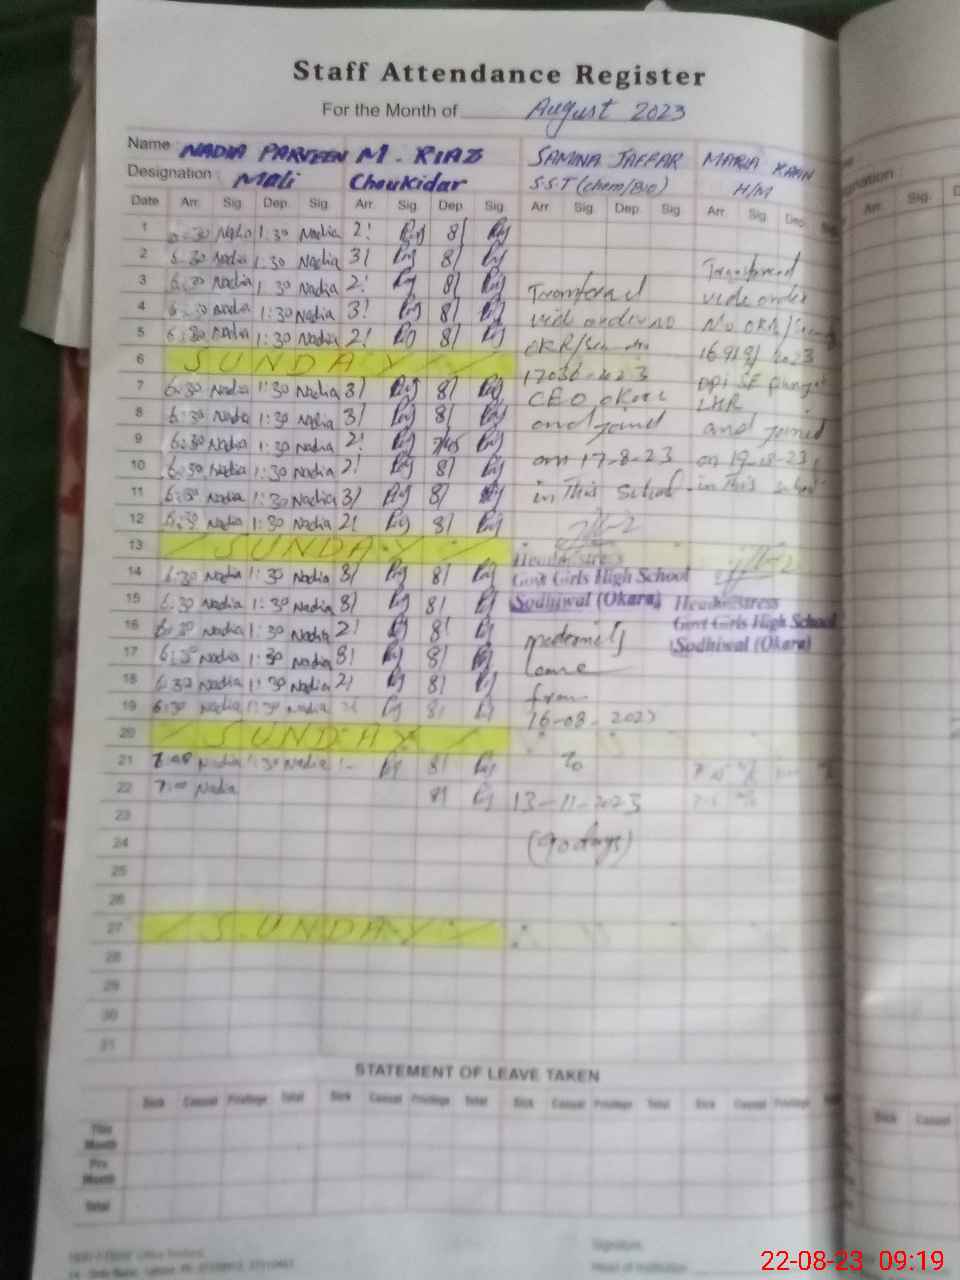 Staff Attendance Register
For the Month of August 2023
Name NADIA PARVEEN M. RIAZ SAMINA JAFFAR MARIA KHAN
Designation : Mali Choukidar S.S.T (chem/Bio) H/M
Date Arr. Sig. Dep. Sig. Arr. Sig. Dep. Sig. Arr. Sig. Dep. Sig. Arr. Sig. Dep.
1 6:30 Nadia 1:30 Nadia 2! 8/
2 6:30 Nadia 1:30 Nadia 3/ 8/
3 6:30 Nadia 1:30 Nadia 2! 8/
4 6:30 Nadia 1:30 Nadia 3! 8/
5 6:30 Nadia 1:30 Nadia 2! 8/
6 SUNDAY
7 6:30 Nadia 1:30 Nadia 3/ 8/
8 6:30 Nadia 1:30 Nadia 3/ 8/
9 6:30 Nadia 1:30 Nadia 2! 7/45
10 6:30 Nadia 1:30 Nadia 2! 8/
11 6:30 Nadia 1:30 Nadia 3/ 8/
12 6:30 Nadia 1:30 Nadia 2! 8/
13 SUNDAY
14 6:30 Nadia 1:30 Nadia 8/ 8/
15 6:30 Nadia 1:30 Nadia 8/ 8/
16 6:30 Nadia 1:30 Nadia 2! 8/
17 6:30 Nadia 1:30 Nadia 8! 8/
18 6:30 Nadia 1:30 Nadia 2! 8/
19 6:30 Nadia 1:30 Nadia 8/
20 SUNDAY
21 7:00 Nadia 1:30 Nadia 8/
22 7:00 Nadia 8/
23
24
25
26
27 SUNDAY
28
29
30
31
Transferred
vide order no
OKR/
17036-2023
CEO Okara
and joined
on 17-8-23
in This School
Headmistress
Govt Girls High School
Sodhiwal (Okara)
leave
from
16-08-2023
To
13-11-2023
(90 days)
Transferred
vide order
No OKR/
16919/2023
DPI SE Punjab
LHR
and joined
on 19-8-23
in This School
Headmistress
Govt Girls High School
Sodhiwal (Okara)
STATEMENT OF LEAVE TAKEN
Sick Casual Privilege Total Sick Casual Privilege Total Sick Casual Privilege Total Sick Casual Privilege
This Month
Pre Month
Total
Signature
22-08-23 09:19